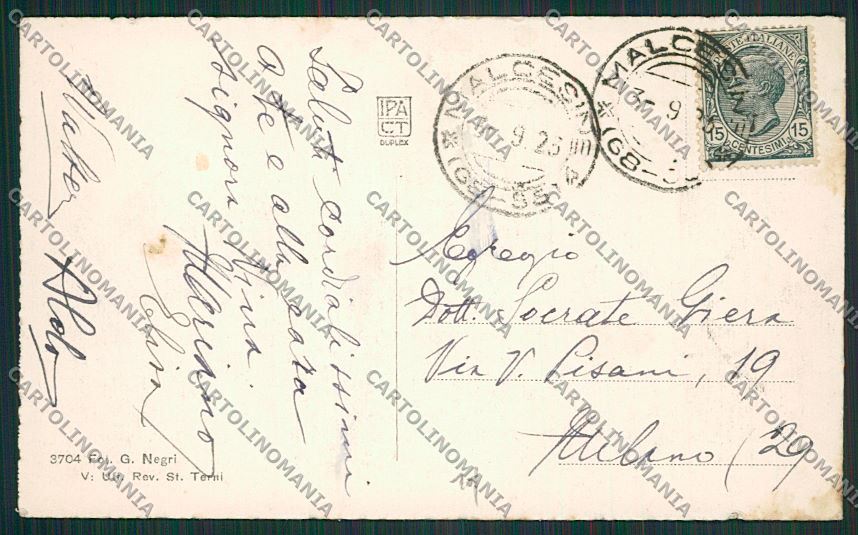 Saluti cordialissimi
a te e alla cara
signora Nina.
Marino
Elisa
Walter
Aldo
IPA
CT
DUPLEX
3704 Fot. G. Negri
V: Uff. Rev. St. Terni
MALCESINE
9 25
(68-55)
MALCESINE
9
(68-
POSTE ITALIANE
15 15
CENTESIMI
Egregio
Dott. Socrate Giera
Via V. Pisani, 19
Milano (29
CARTOLINOMANIA